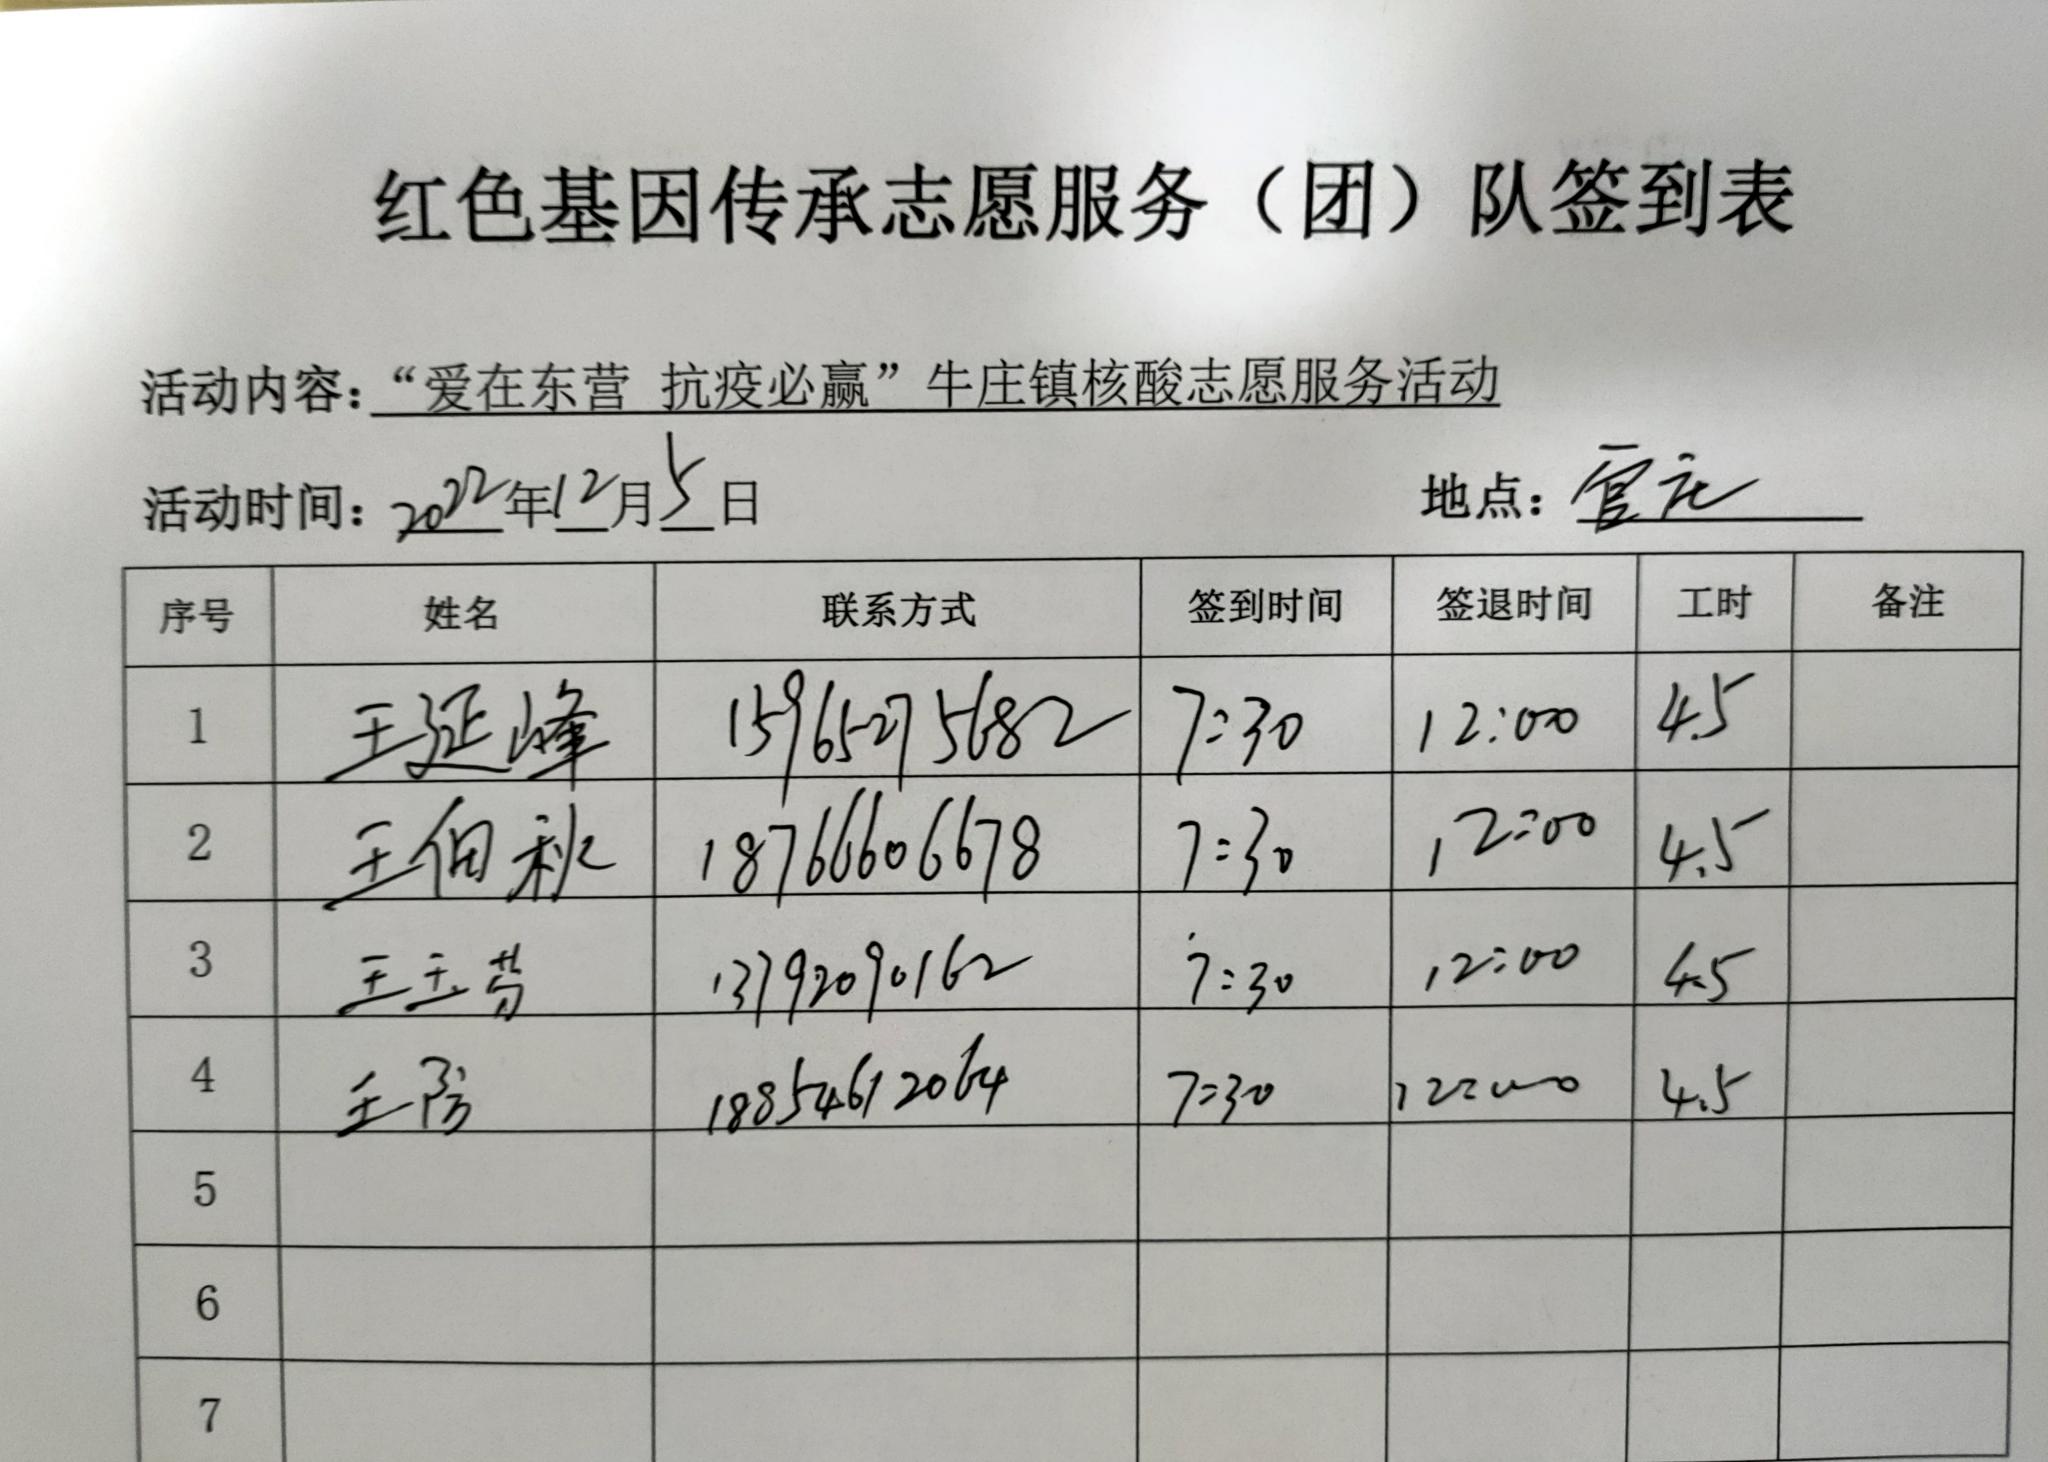 红色基因传承志愿服务（团）队签到表
活动内容：“爱在东营 抗疫必赢”牛庄镇核酸志愿服务活动
活动时间：2022年12月5日 地点：官庄
序号 姓名 联系方式 签到时间 签退时间 工时 备注
1 王延峰 15965275682 7:30 12:00 4.5
2 王伯秋 18766606678 7:30 12:00 4.5
3 王玉芬 13792090162 7:30 12:00 4.5
4 王防 18854612064 7:30 12:00 4.5
5
6
7